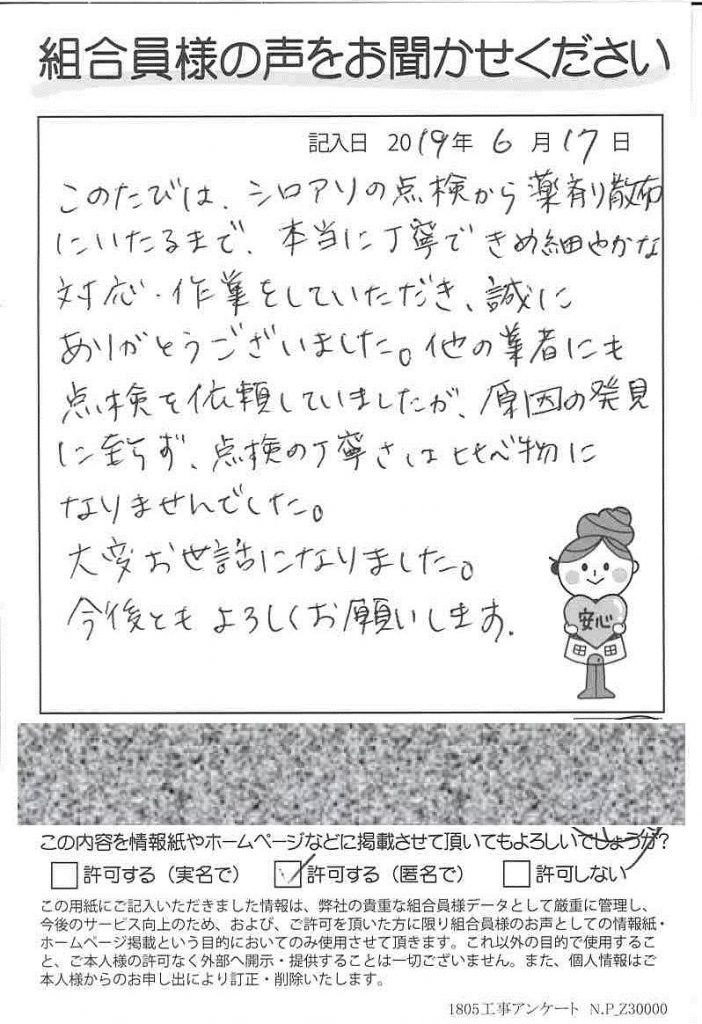 組合員様の声をお聞かせください
記入日 2019年 6月17日
このたびは、シロアリの点検から薬剤散布
にいたるまで、本当に丁寧できめ細やかな
対応・作業をしていただき、誠に
ありがとうございました。他の業者にも
点検を依頼していましたが、原因の発見
に至らず、点検の丁寧さは比べ物に
なりませんでした。
大変お世話になりました。
今後ともよろしくお願いします.
安心
この内容を情報紙やホームページなどに掲載させて頂いてもよろしいでしょうか?
許可する（実名で） 許可する（匿名で） 許可しない
この用紙にご記入いただきました情報は、弊社の貴重な組合員様データとして厳重に管理し、
今後のサービス向上のため、および、ご許可を頂いた方に限り組合員様のお声としての情報紙・
ホームページ掲載という目的においてのみ使用させて頂きます。これ以外の目的で使用するこ
と、ご本人様の許可なく外部へ開示・提供することは一切ございません。また、個人情報はご
本人様からのお申し出により訂正・削除いたします。
1805工事アンケート N.P_Z30000